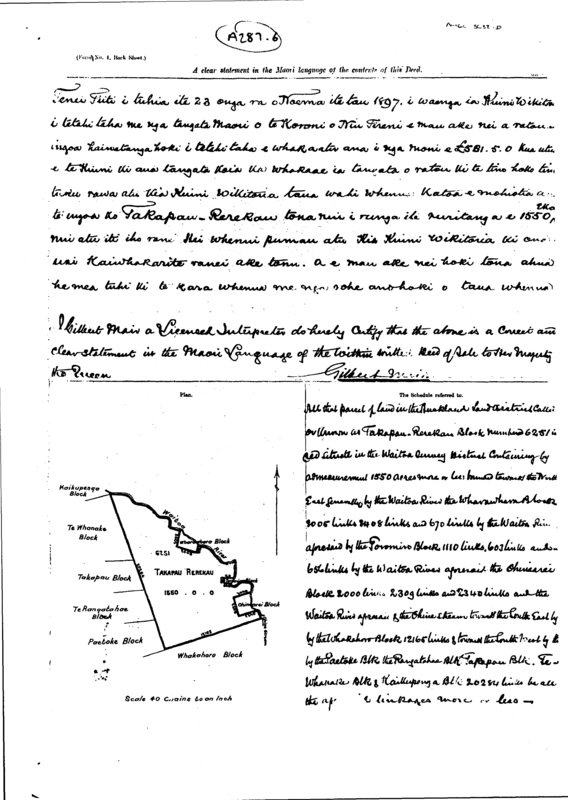 A287.6
(Form No. 1, Back Sheet.)
A clear statement in the Maori language of the contents of this Deed.
Tenei Tiiti i tuhia i te 23 o nga ra o Noema i te tau 1897. i waenga ia Kuini Wikitoria
i tetehi taha me nga tangata Maori o te Koroni o Niu Tireni e mau ake nei a ratou
ingoa hainatanga hoki i tetehi taha e whakaatu ana i nga moni e £581.5.0 kua utu
e te Kuini ki aua tangata koia ka whakaae ia tangata o ratou ki te tino hoko
rawa atu kia Kuini Wikitoria taua wahi whenua katoa e mohiotia ana
te ingoa ko Takapau-Rerekau tona nui i runga i te ruritanga e 1550 eka
nui atu iti iho ranei Hei whenua pumau atu kia Kuini Wikitoria ki ona
uri Kaiwhakarite ranei ake tonu. A e mau ake nei hoki tona ahua
he mea tuhi ki te kara whenua me nga rohe ano hoki o taua whenua
I Gilbert Mair a Licensed Interpreter do hereby Certify that the above is a Correct and
clear Statement in the Maori Language of the within written Deed of Sale to Her Majesty
the Queen
Gilbert Mair
Plan.
Kaikuponga
Block
Te Whanake
Block
Takapau Block
Te Rangatahae
Block
Paetoke Block
Whakahoro Block
Waitoa River
Block
6251
TAKAPAU REREKAU
1550 . 0 . 0
Block
Scale 40 Chains to an Inch
The Schedule referred to.
All that parcel of land in the Auckland Land District Called
or Known as Takapau-Rerekau Block numbered 6251
situate in the Waitoa Survey District Containing by
admeasurement 1550 acres more or less bounded towards the North
East generally by the Waitoa River the Block
2005 links 3408 links and 670 links by the Waitoa River
aforesaid by the Toromiro Block 1110 links, 603 links and
656 links by the Waitoa River aforesaid the
Block 2000 links 2309 links and 2340 links and the
Waitoa River aforesaid & the stream towards the South East by
by the Whakahoro Block 12165 links & towards the South West by
by the Paetoke Blk the Rangatahae Blk Takapau Blk. Te
Whanake Blk & Kaikuponga Blk 20284 links be all
the linkages more or less